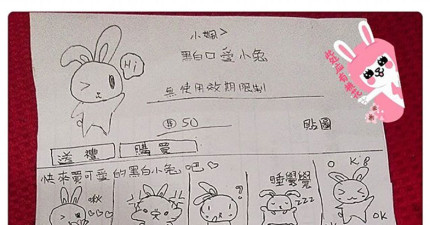 小嫻>
黑白口愛小兔
Hi
無使用效期限制
50
貼圖
送禮
購買
快來買可愛的黑白小兔吧♡
啾
♡♡♡
?
睡覺覺
zzz
OK啦
OK